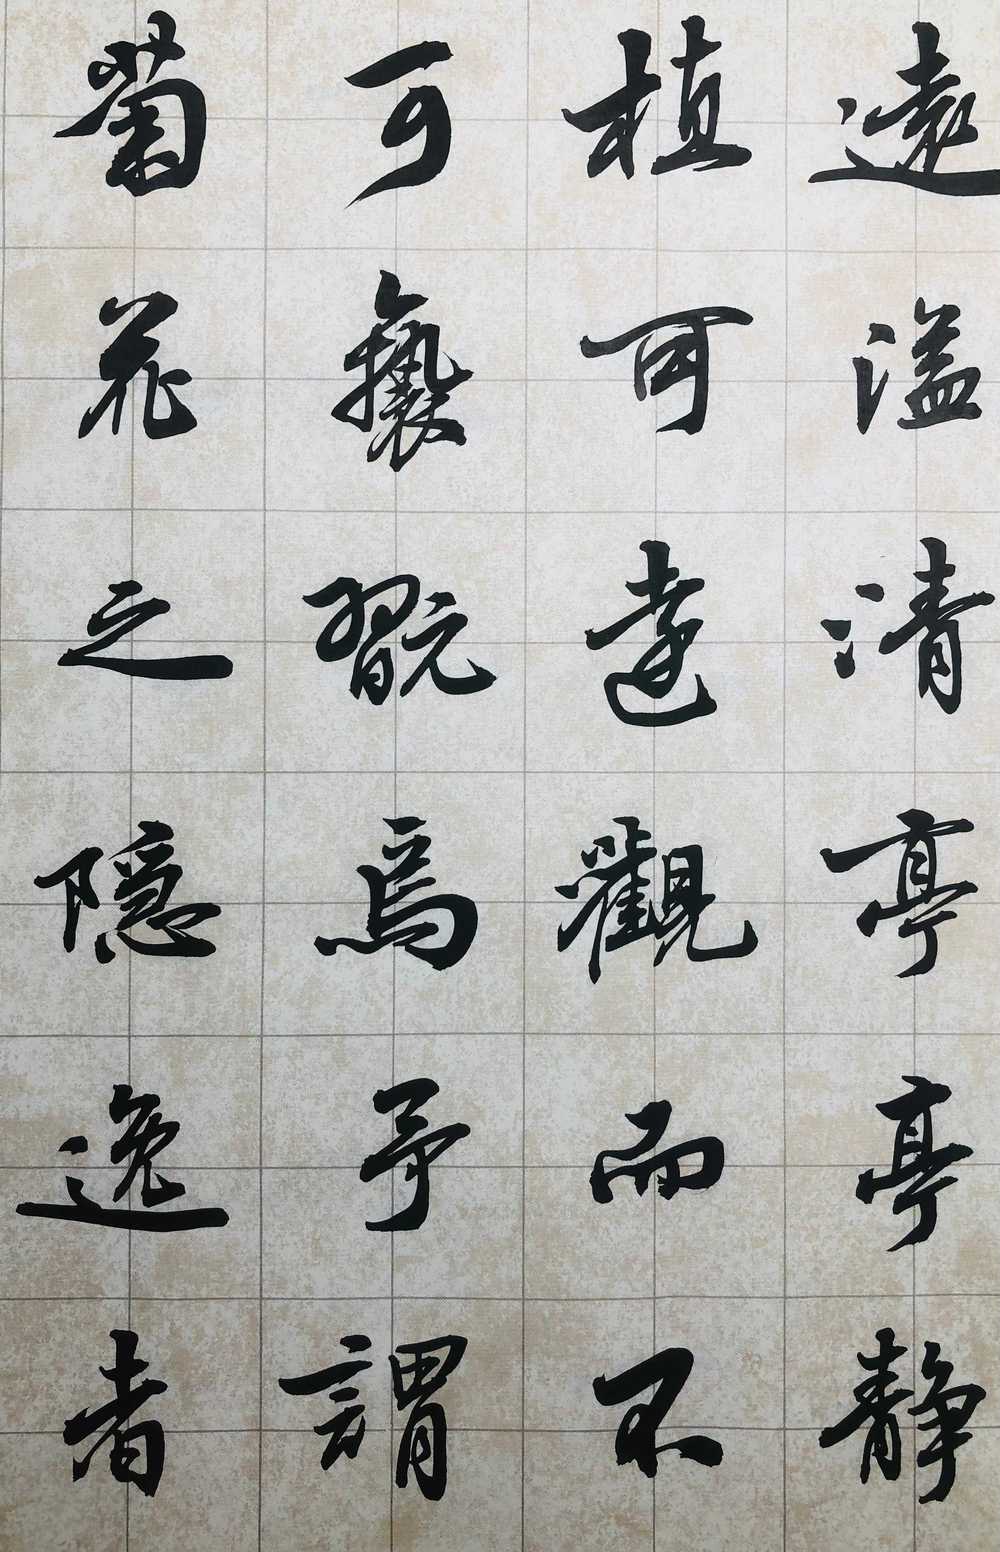 遠溢清亭亭静
植可遠觀而不
可褻翫焉予謂
菊花之隱逸者